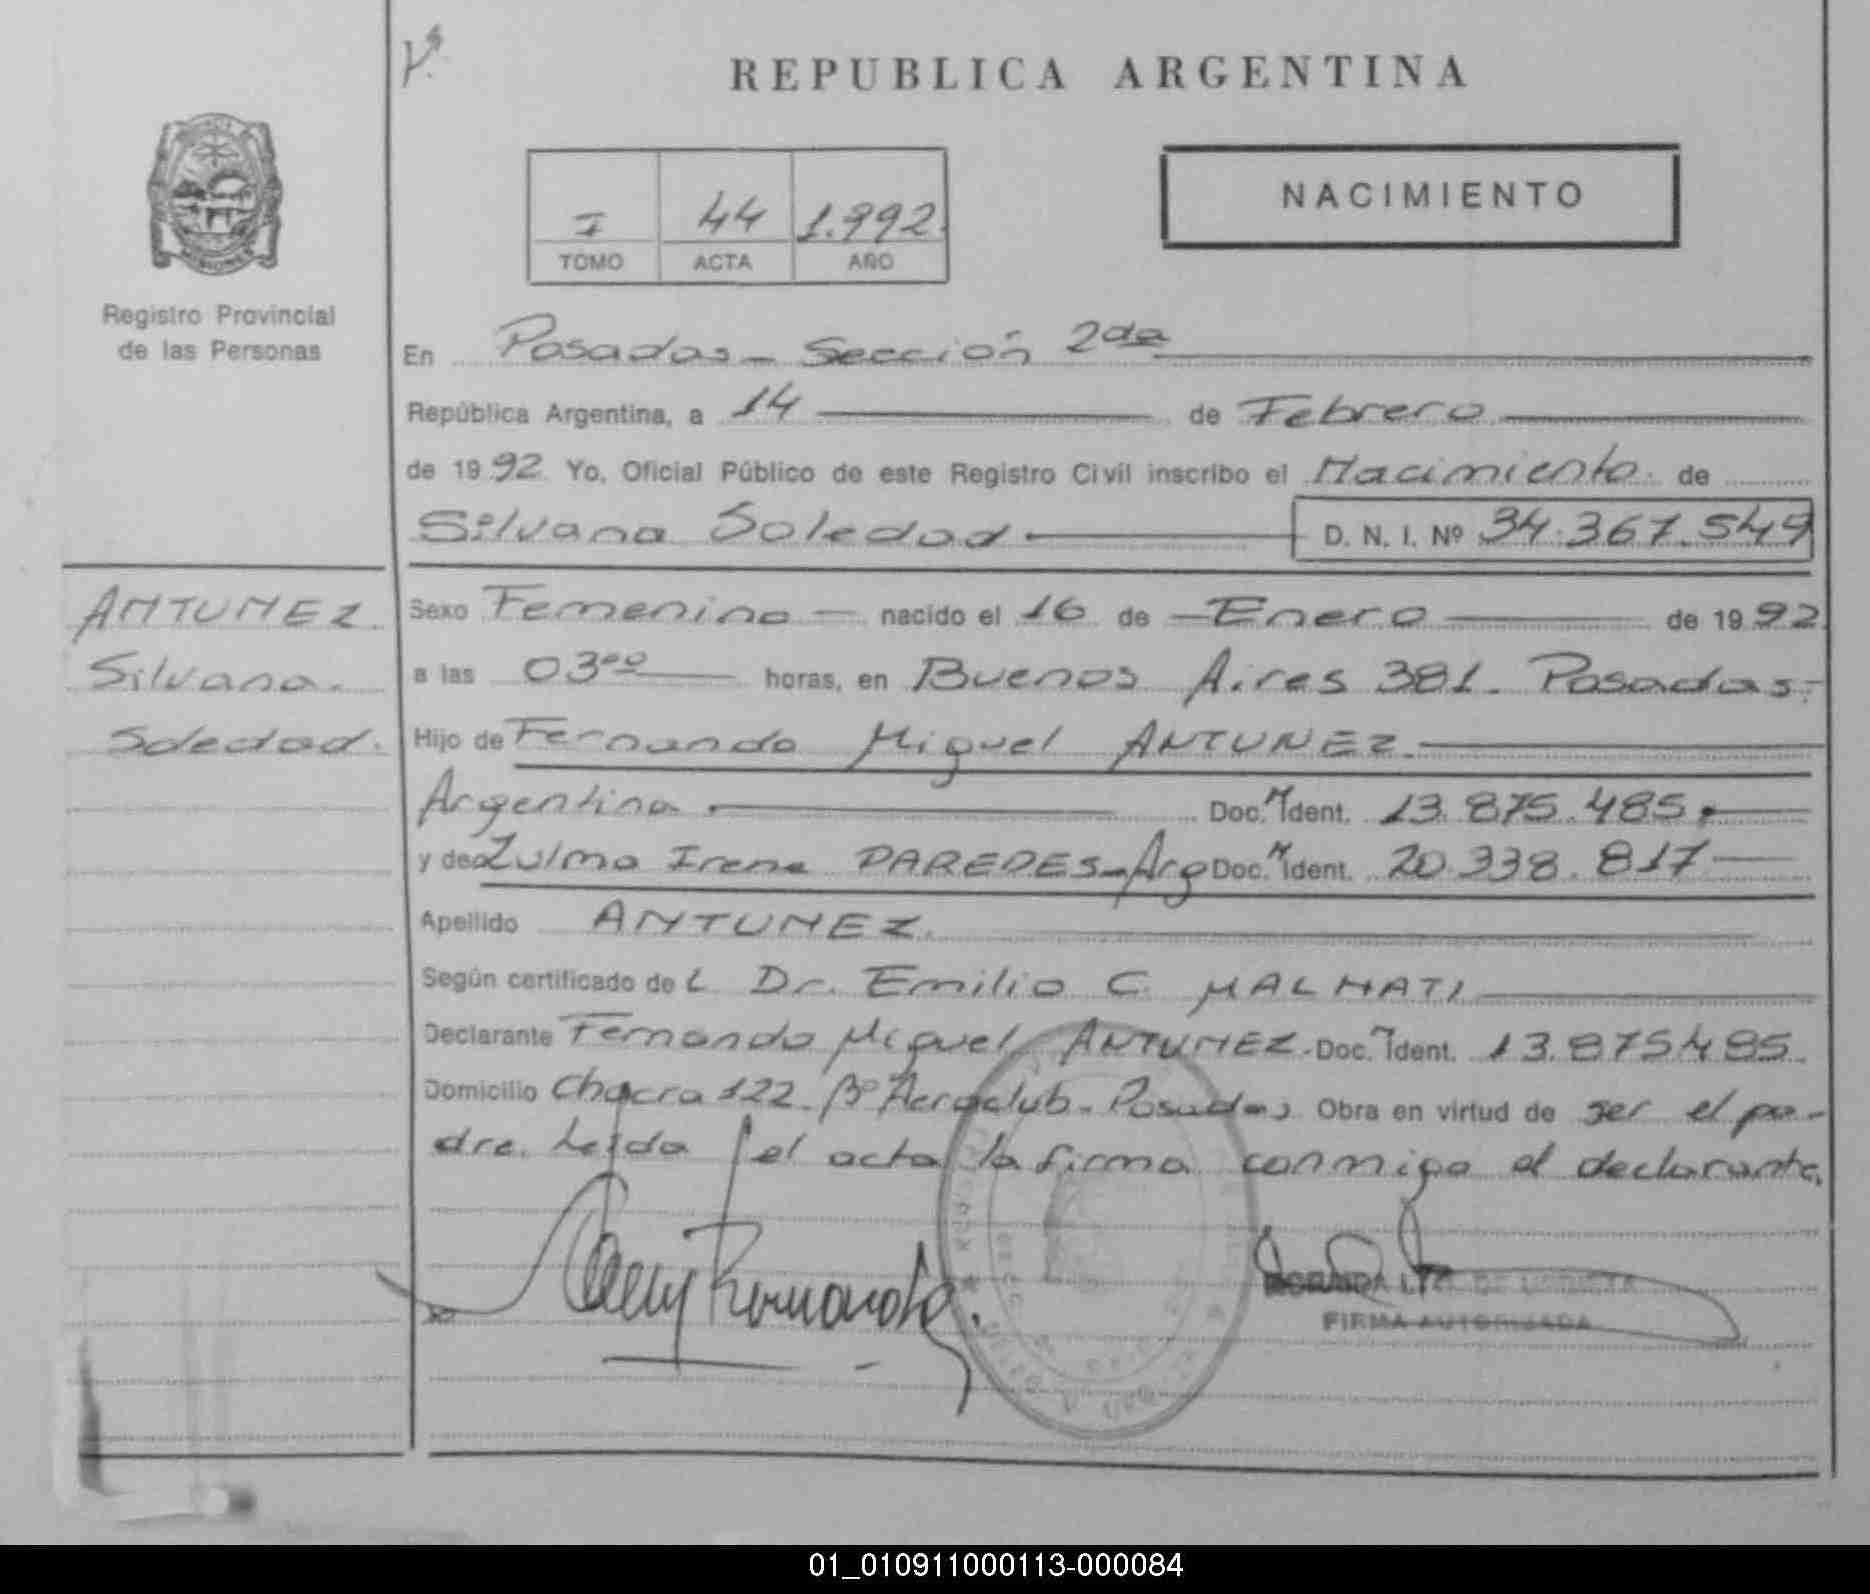 REPUBLICA ARGENTINA
NACIMIENTO
I 44 1.992.
TOMO ACTA AÑO
MISIONES
Registro Provincial
de las Personas
En Posadas - Sección 2da
República Argentina, a 14 de Febrero
de 1992 Yo, Oficial Público de este Registro Civil inscribo el Nacimiento de
Silvana Soledad D. N. I. Nº 34.367.549
ANTUNEZ
Silvana
Soledad.
Sexo Femenino nacido el 16 de Enero de 1992
a las 03ºº horas, en Buenos Aires 381 - Posadas.
Hijo de Fernando Miguel ANTUNEZ
Argentina Doc. M Ident. 13.875.485
y de Zulma Irene PAREDES - Arg Doc. M Ident. 20.338.817
Apellido ANTUNEZ
Según certificado de L Dr. Emilio C. MALNATI
Declarante Fernando Miguel ANTUNEZ. Doc. M Ident. 13.875485
Domicilio Chacra 122 - Bº Aeroclub - Posadas Obra en virtud de ser el pa-
dre. Leida el acta la firma conmigo el declarante.
FIRMA AUTORIZADA
01_010911000113-000084